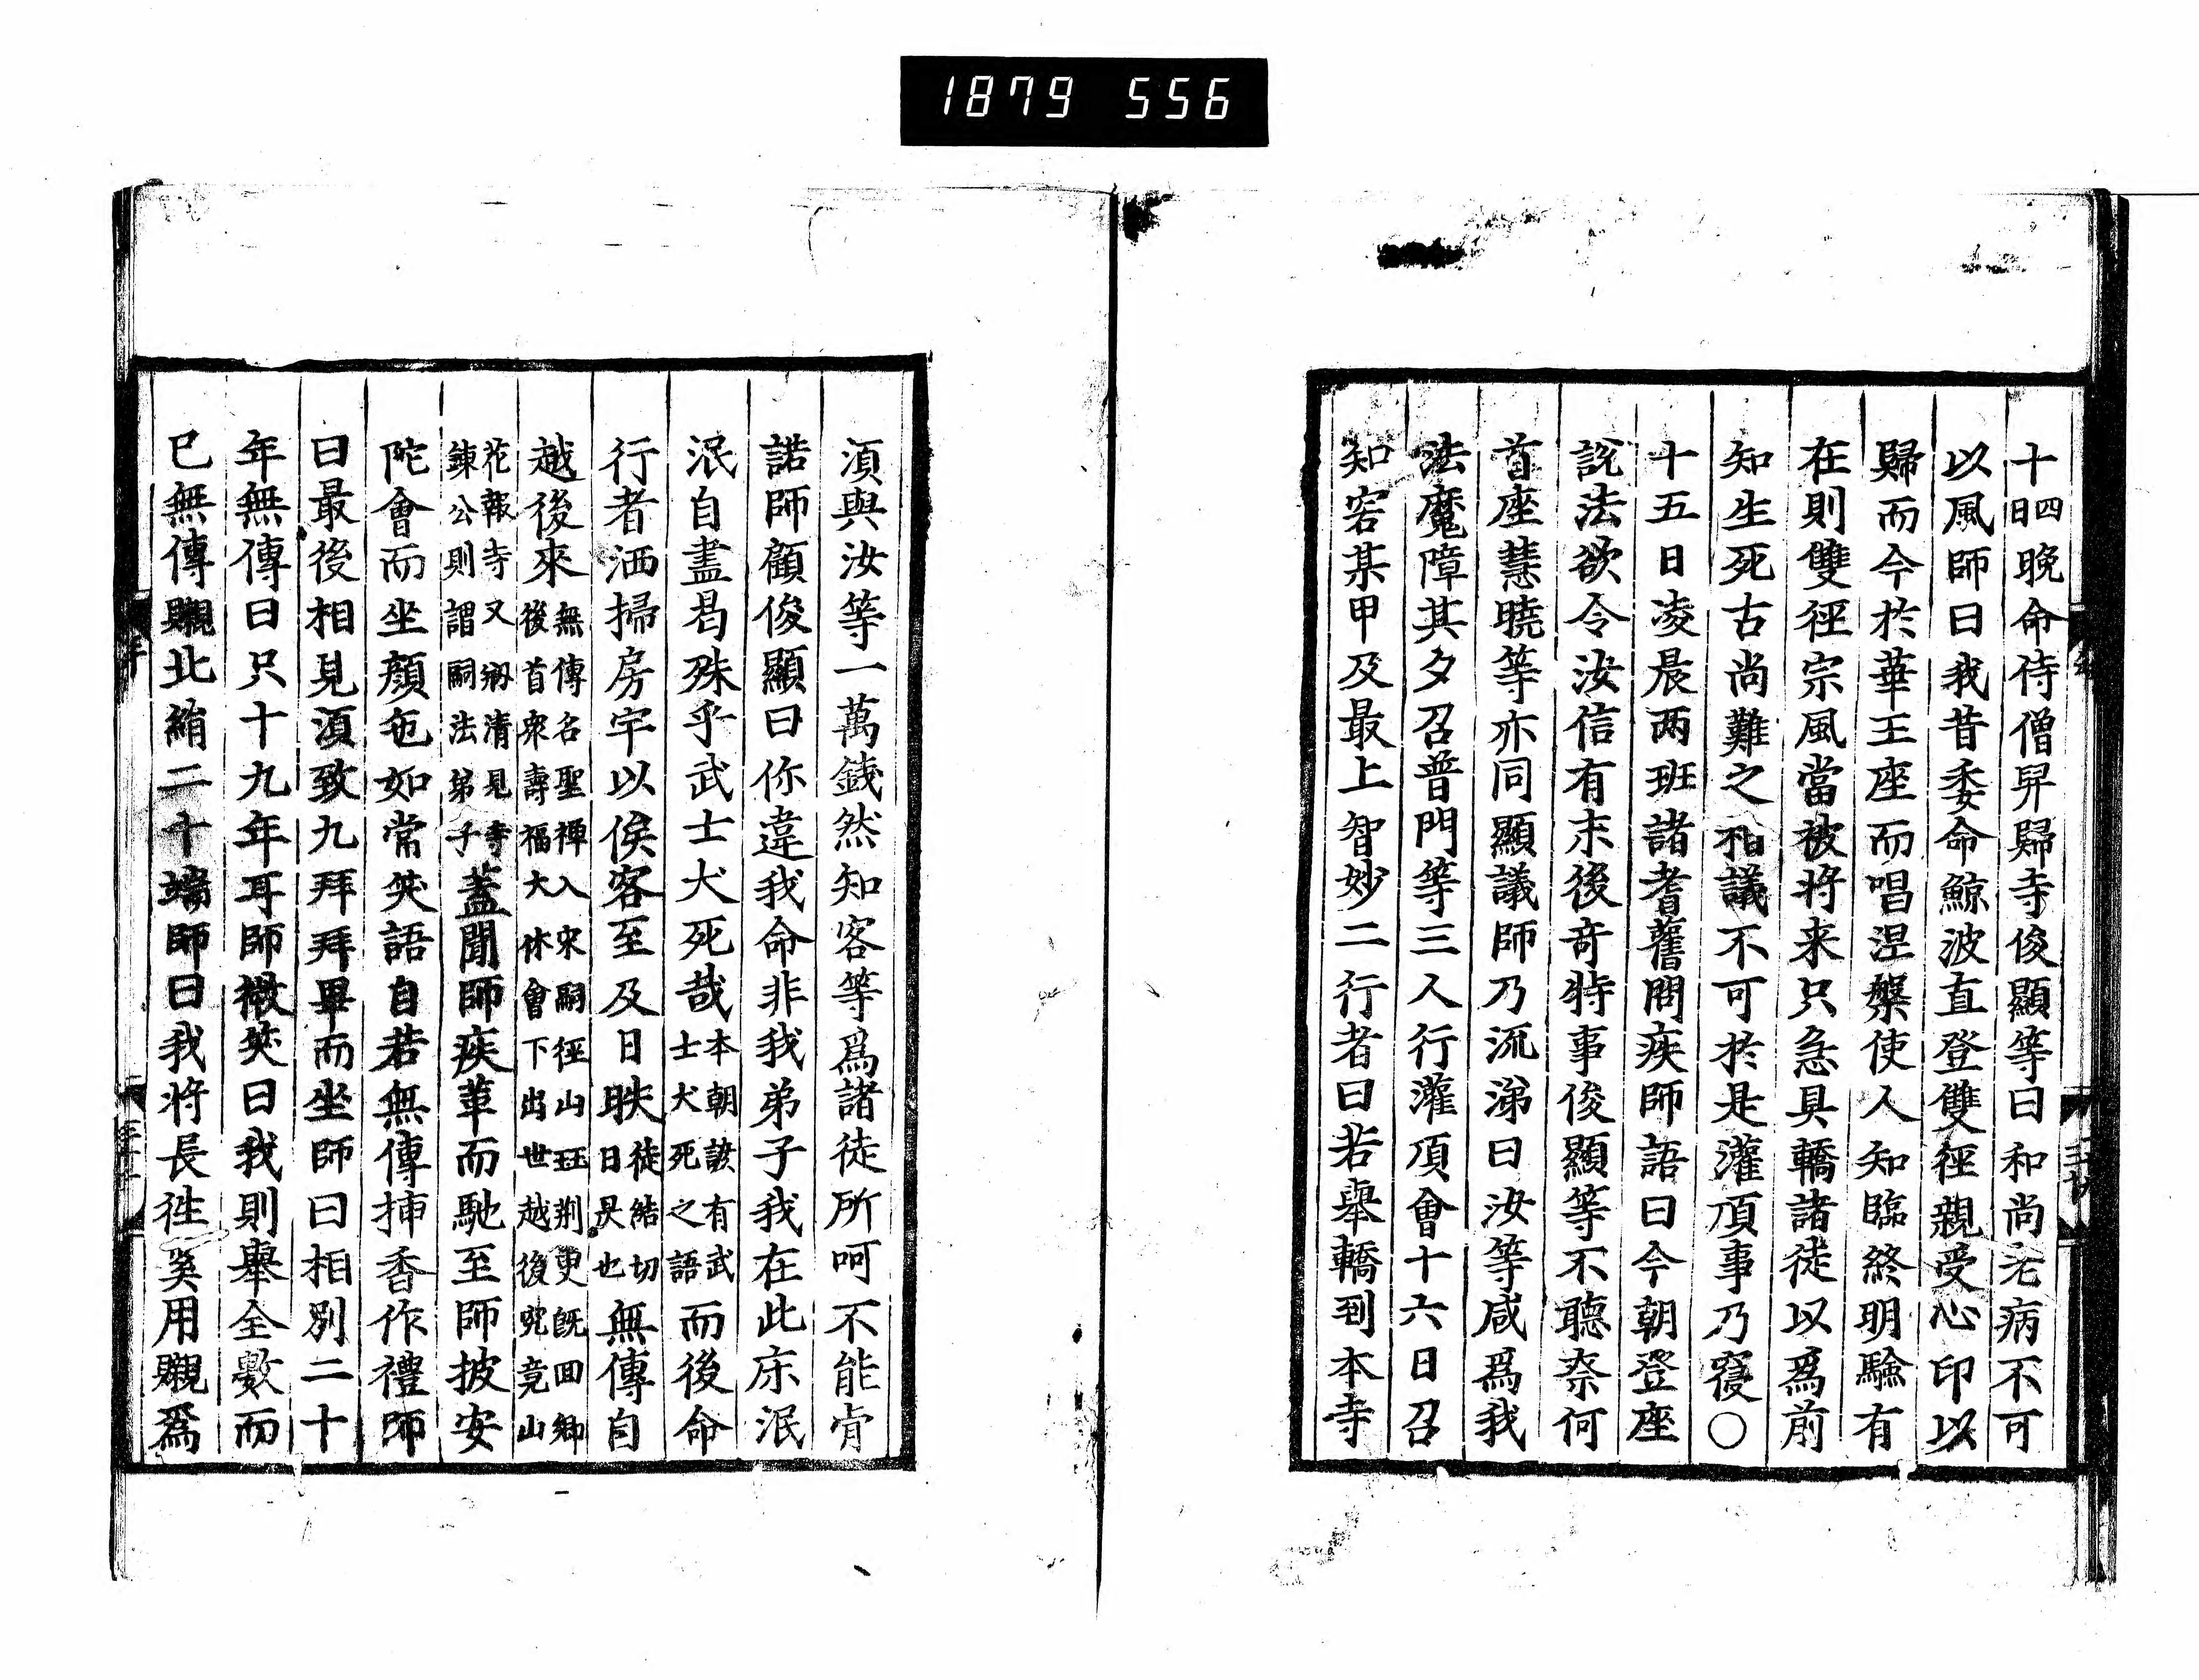 1879 556
十四日晚命侍僧舁歸寺俊顯等曰和尚老病不可
以風師曰我昔委命鯨波直登雙徑親受心印以
歸而今於華王座而唱涅槃使人知臨終明驗有
在則雙徑宗風當被将来只急具轎諸徒以爲前
知生死古尚難之相議不可於是灌頂事乃寢〇
十五日凌晨两班諸耆舊問疾師語曰今朝登座
說法欲令汝信有末後奇特事俊顯等不聽奈何
首座慧曉等亦同顯議師乃流涕曰汝等咸爲我
法魔障其夕召普門等三人行灌頂會十六日召
知客某甲及最上智妙二行者曰若舉轎到本寺
須與汝等一萬銭然知客等爲諸徒所呵不能肯
諾師顧俊顯曰你違我命非我弟子我在此床泯
泯自盡曷殊乎武士犬死哉本朝諺有武士犬死之語而後命
行者洒掃房宇以俟客至及日昳徒結切日昃也無傳自
越後來無傳名聖禪入宋嗣徑山珏荆叟既回鄉後首衆壽福大休會下出世越後兜竟山
花報寺又刱清見寺鍊公則謂嗣法弟子蓋聞師疾革而馳至師披安
陀會而坐顔色如常笑語自若無傳揷香作禮師
曰最後相見須致九拜拜畢而坐師曰相別二十
年無傳曰只十九年耳師微笑曰我則舉全數而
已無傳䞋北絹二十端師曰我将長徃矣用䞋爲